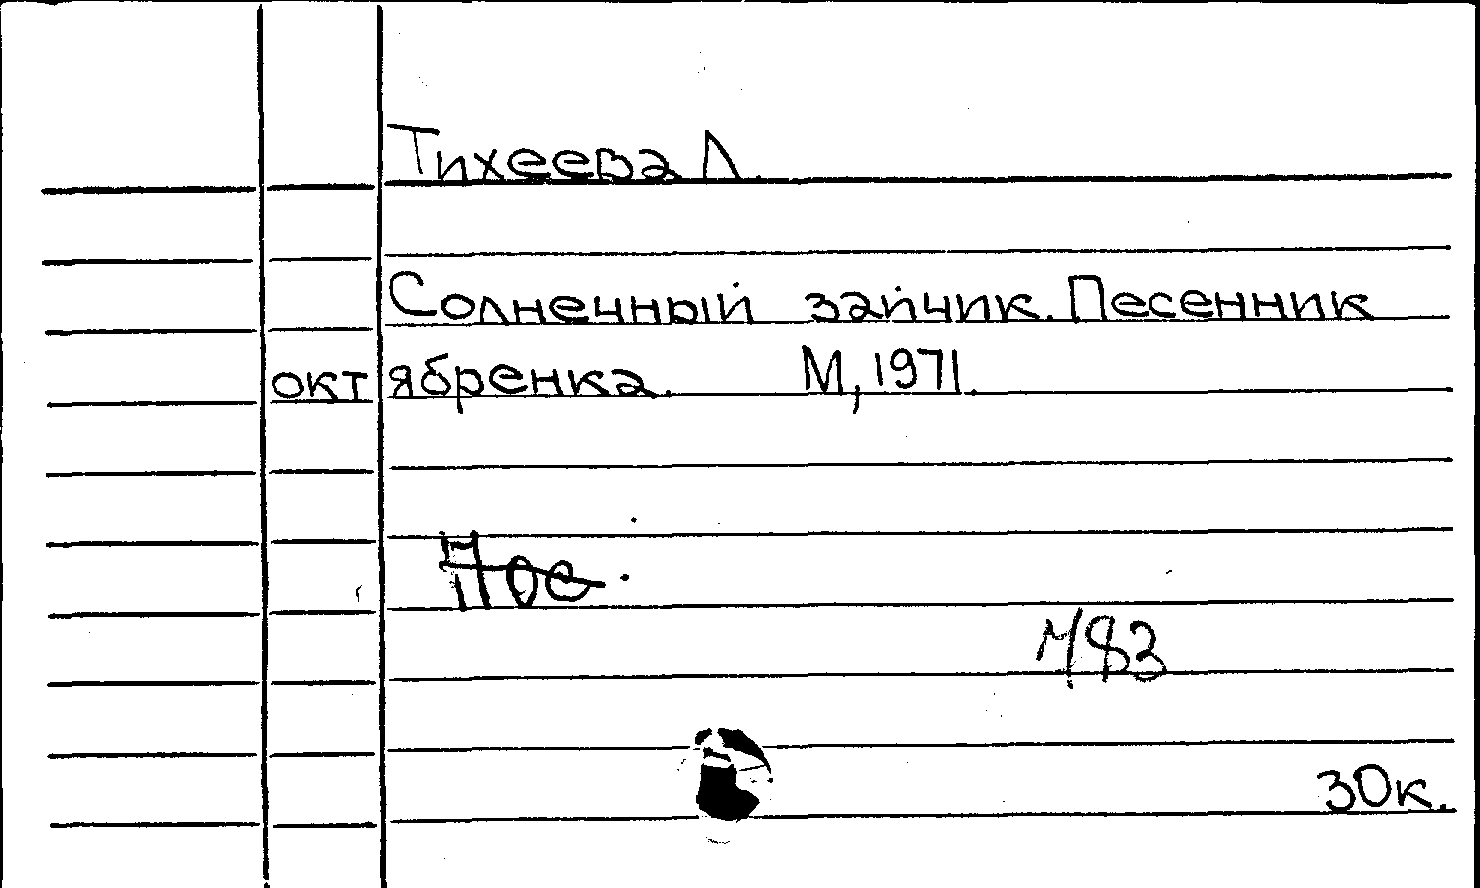 Тихеева Л.
Солнечный зайчик. Песенник
октябренка. М, 1971.
30к.